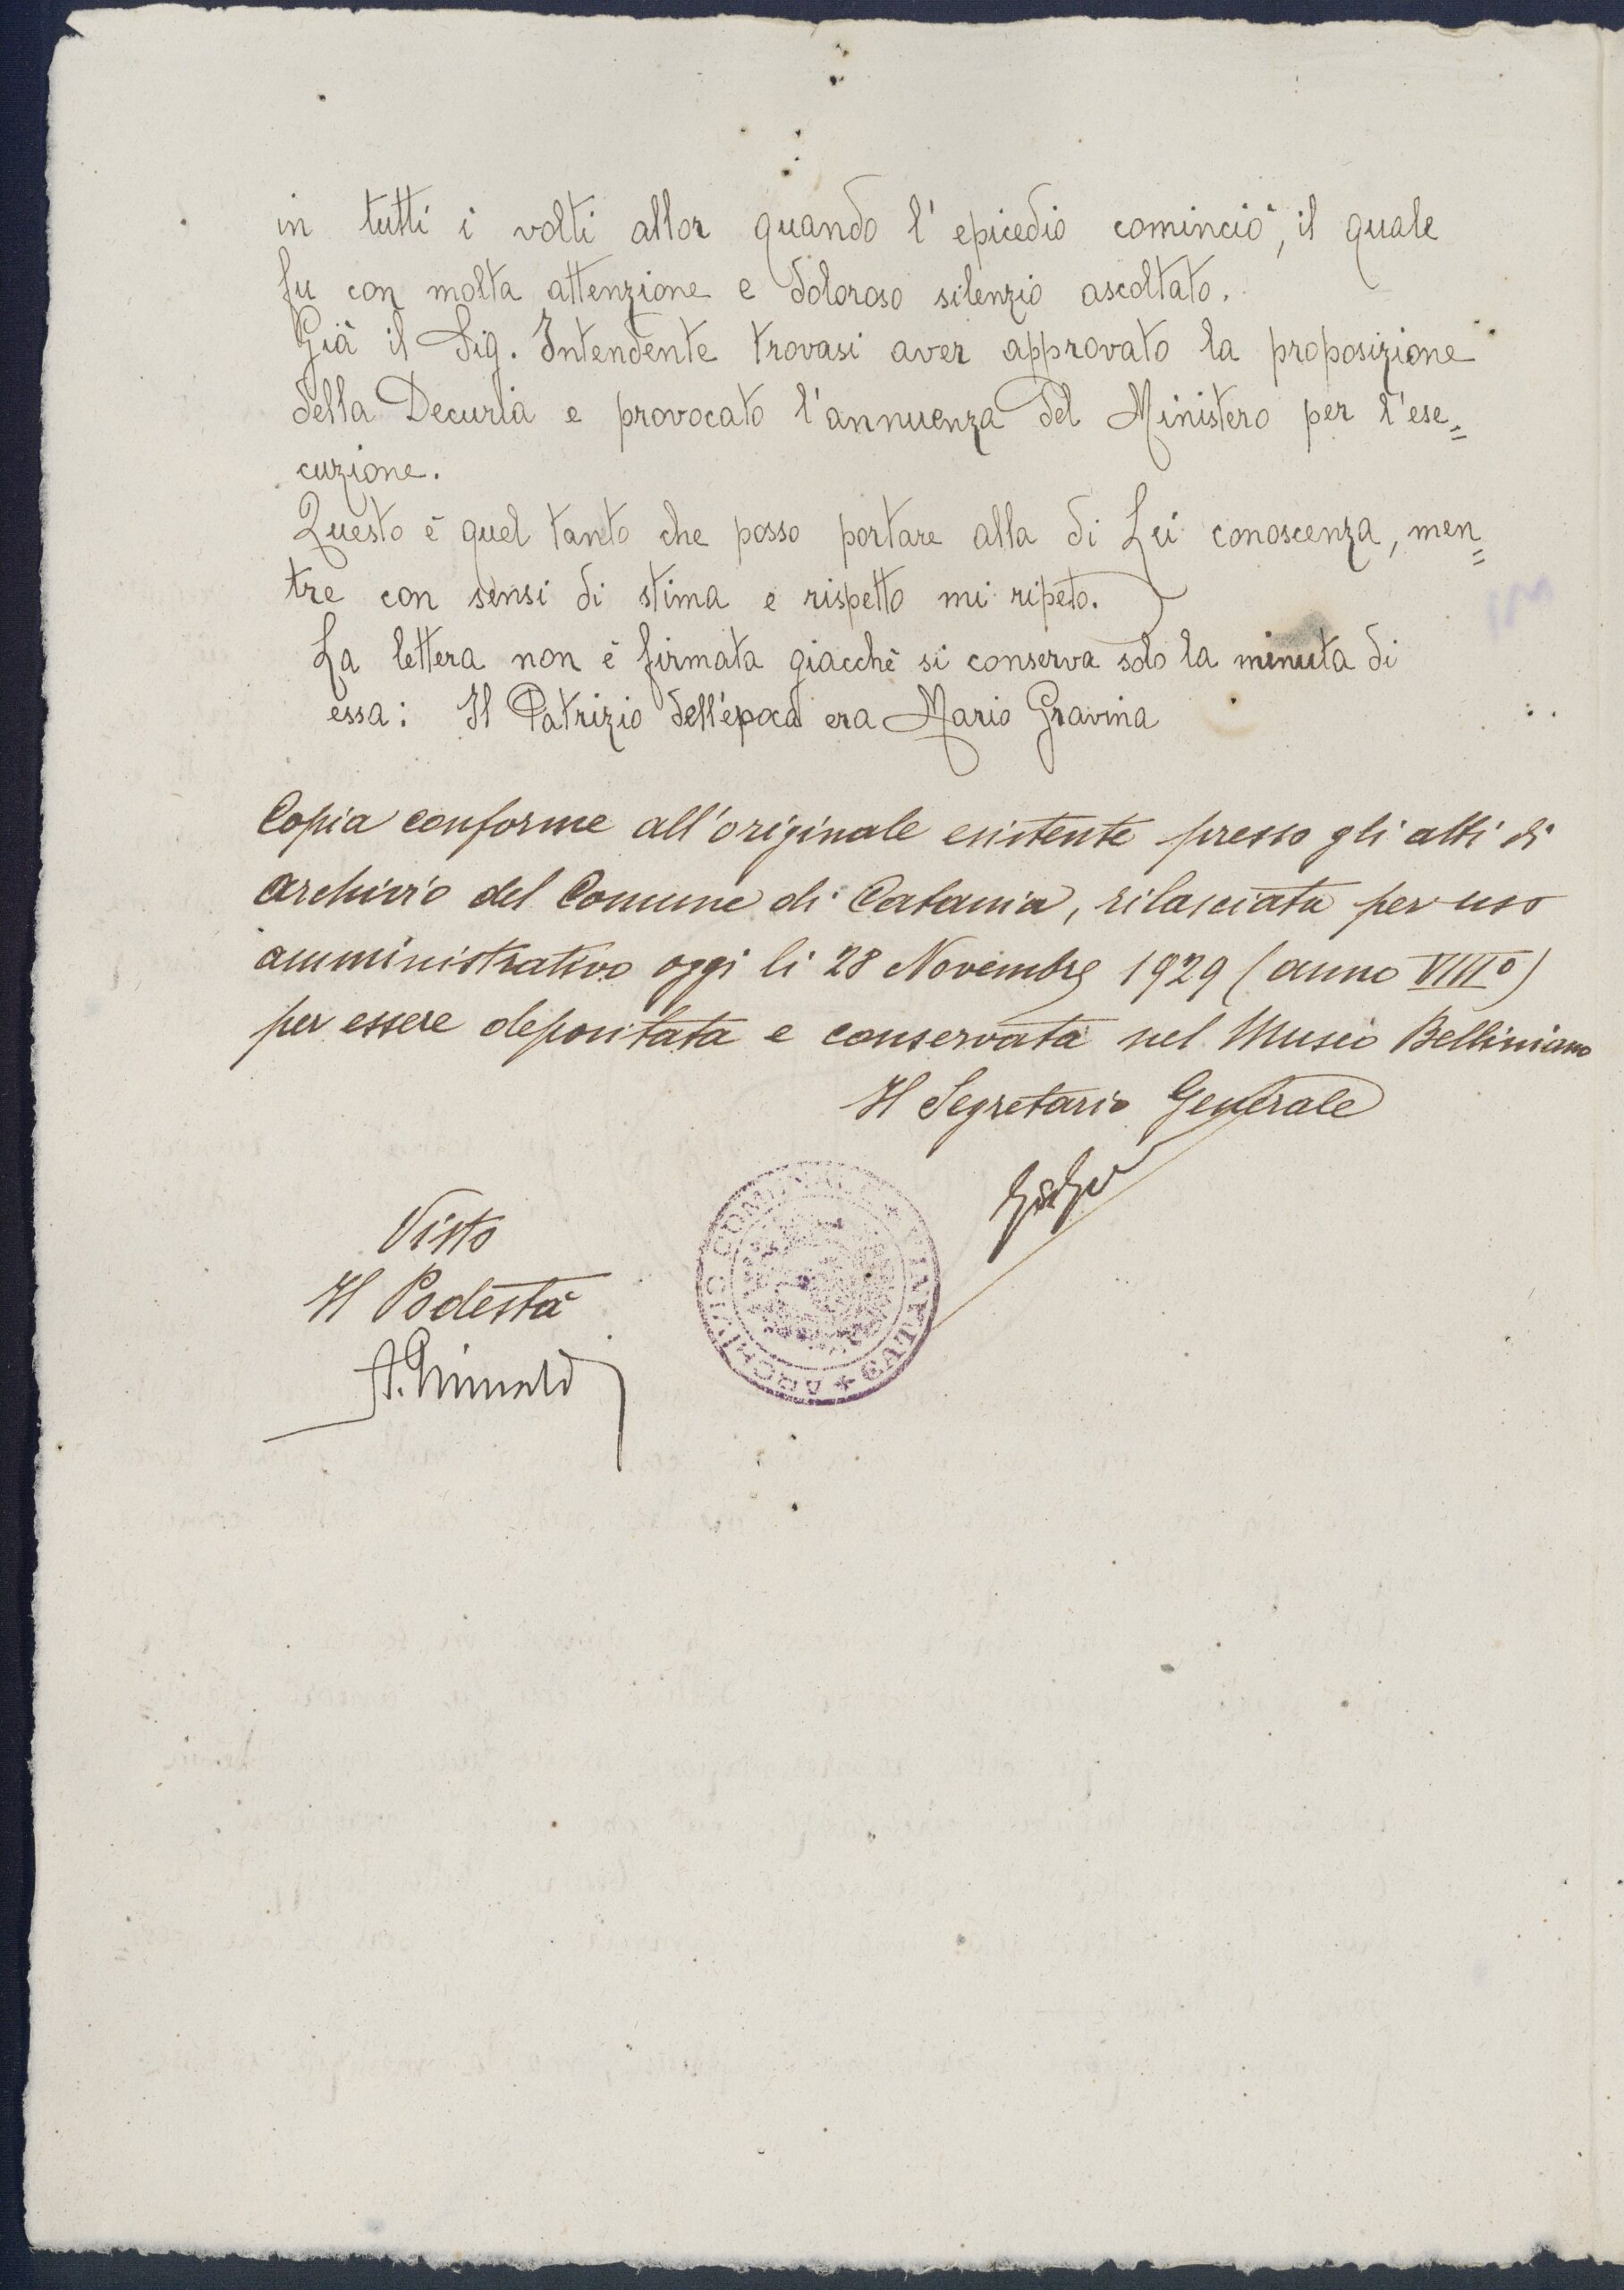 in tutti i volti allor quando l'epicedio cominciò, il quale
fu con molta attenzione e doloroso silenzio ascoltato.
Già il Sig. Intendente trovasi aver approvato la proposizione
della Decuria e provocato l'annuenza del Ministero per l'ese=
cuzione.
Questo è quel tanto che posso portare alla di Lei conoscenza, men=
tre con sensi di stima e rispetto mi ripeto.
La lettera non è firmata giacchè si conserva solo la minuta di
essa: Il Patrizio dell'epoca era Mario Gravina
Copia conforme all'originale esistente presso gli atti di
archivio del Comune di Catania, rilasciata per uso
amministrativo oggi li 28 Novembre 1929 (anno VIII°)
per essere depositata e conservata nel Museo Belliniano
Il Segretario Generale
Visto
Il Podestà
ARCHIVIO COMUNALE * CATANIA *